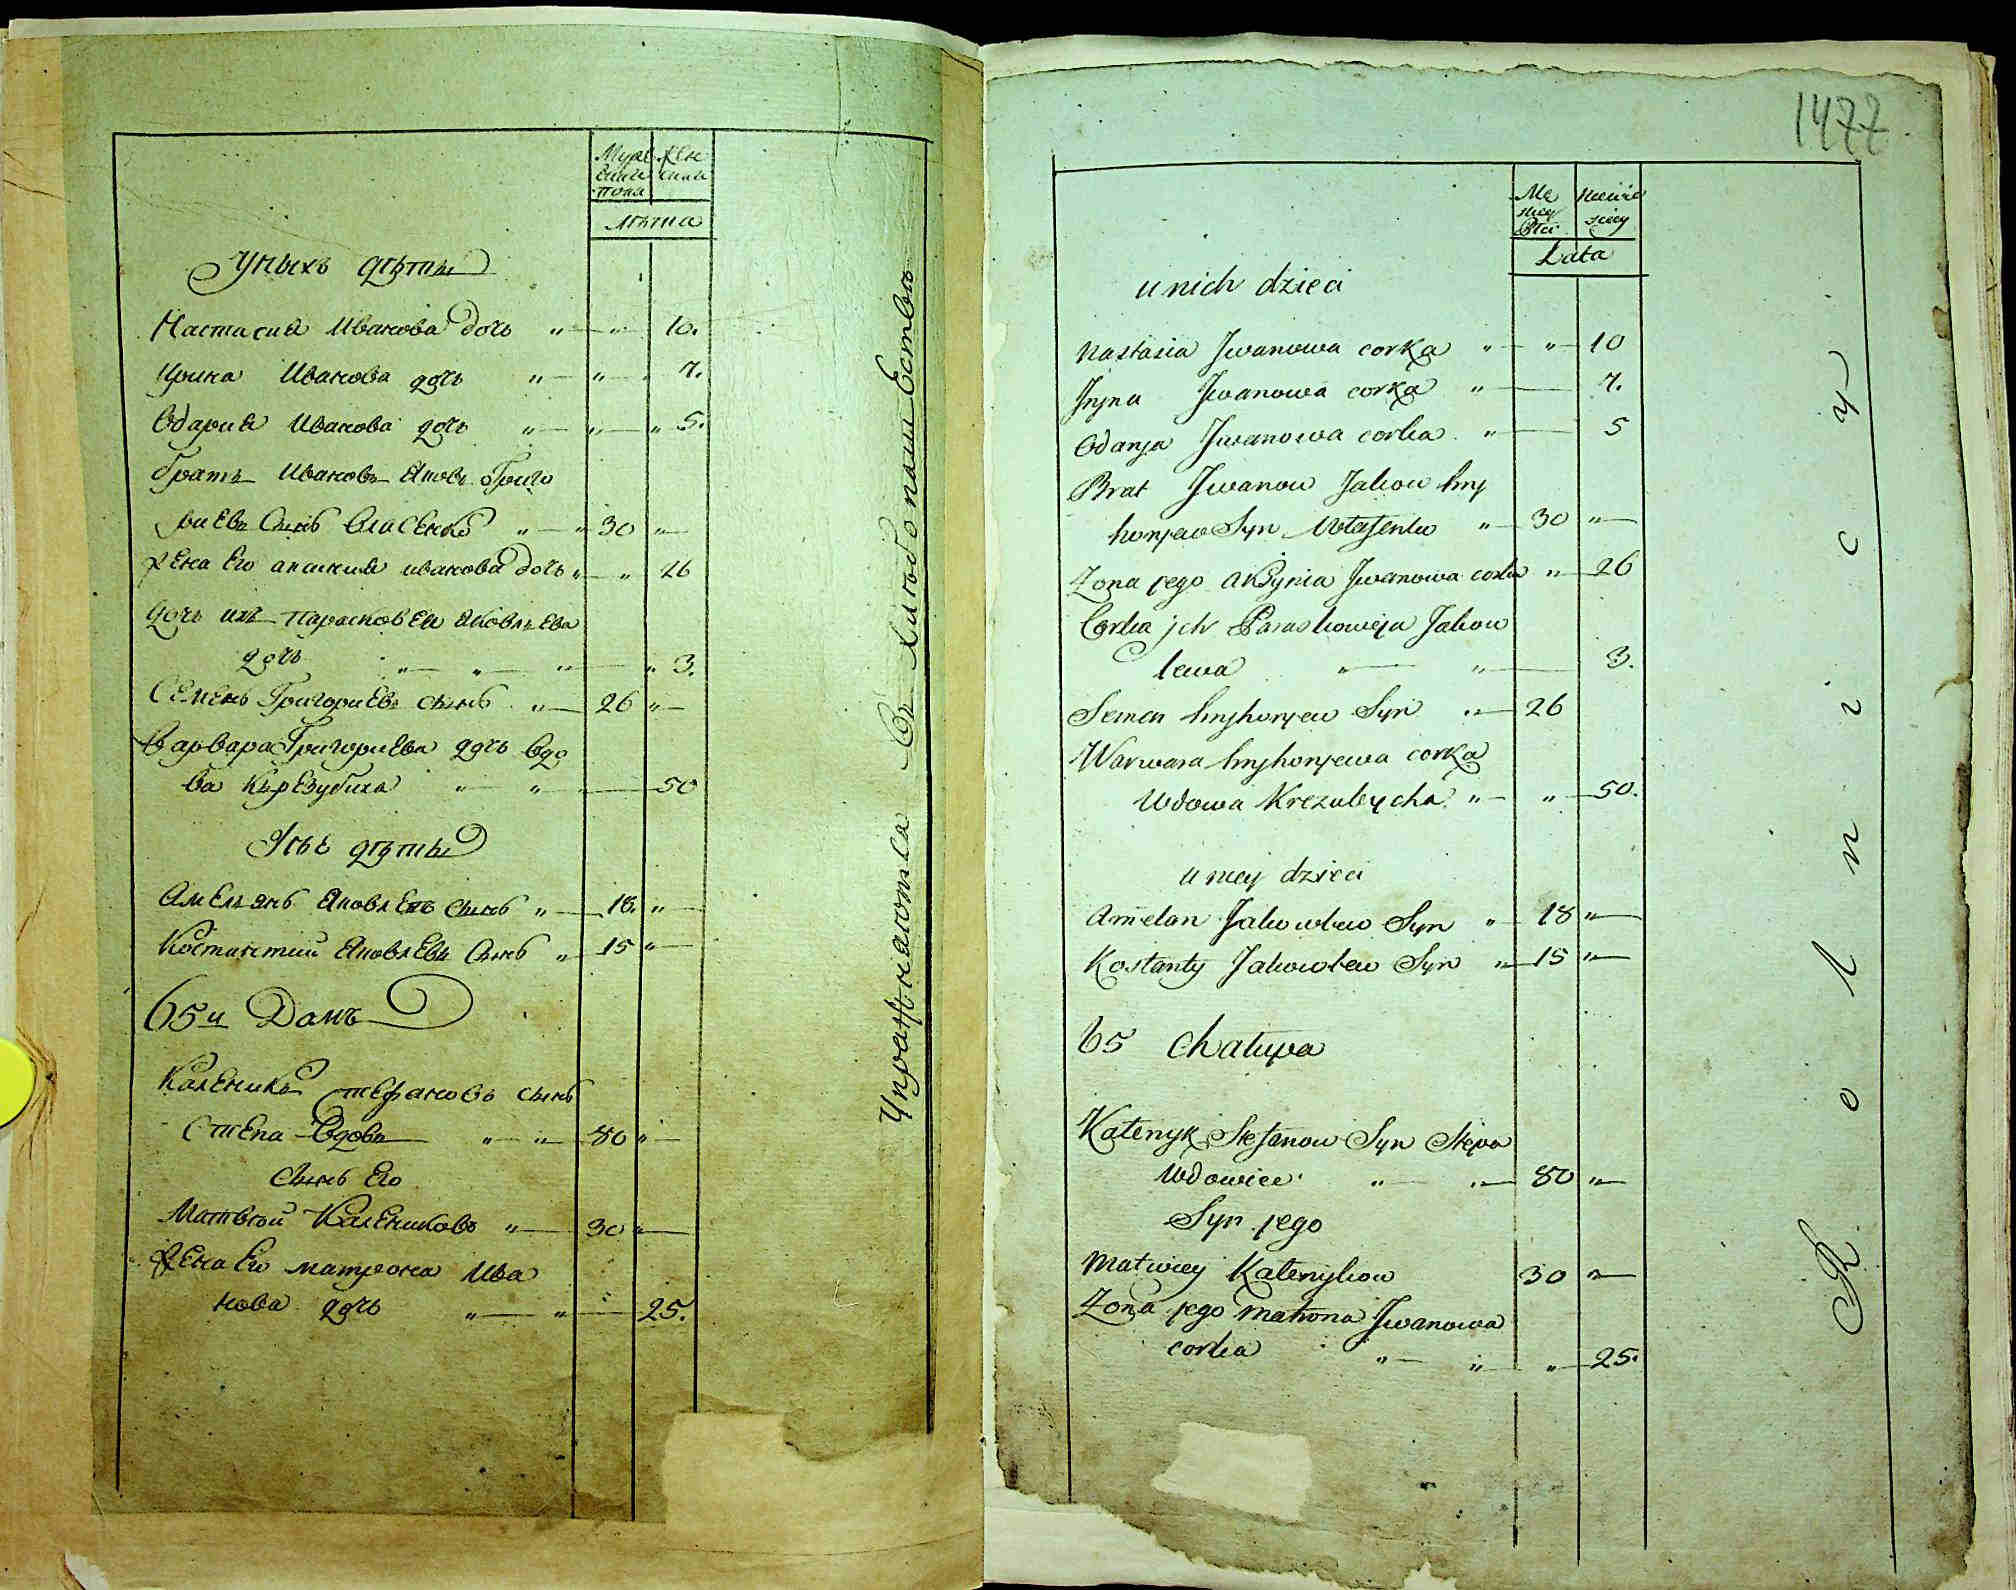 Муже Жен
ска ска
пола
Лѣта
У нихъ дѣти
Настасия Иванова дочь " — " — 10.
Ирина Иванова дочь " — " — 7.
Одария Иванова дочь " — " — " 5.
Братъ Ивановъ Яковъ Григо
риевъ Сынъ Власенко " — " 30 " —
Жена Его Аксиния Иванова дочь " — " 26
Дочь ихъ Парасковея Яковлева
дочь " — " — " — " 3.
Семенъ Григориевъ сынъ " — 26 " —
Варвара Григориева дочь вдо
ва Крезубиха " — " — 50
У неѣ дѣти
Амельянъ Яковлевъ сынъ " — 18. " —
Костантий Яковлевъ Сынъ " — 15 " —
65й Домъ
Каленикъ Стефановъ сынъ
Степа Вдовъ " — " — 80 " —
Сынъ Его
Матвѣй Калениковъ " — 30 " —
Жена Ево матрона Ива
нова дочь " — " — " — 25.
Упражняются Въ Хлѣбопашествѣ
1477
Mę Niewie
skey sciey
Płci
Lata
u nich dzieci
Nastasia Jwanowa corka " — " — 10
Jryna Jwanowa corka " — 7.
Odarya Jwanowa corka " — 5
Brat Jwanow Jakow hry
horjew Syn Własenko " — 30 " —
Zona jego Axynia Jwanowa corka " — 26
Corka jch Paraskoweja Jakow
lewa " — " — 3.
Semen hryhorjew Syn " — 26
Warwara hryhorjewa corka
Wdowa Krezubycha " — " — 50.
u niey dzieci
Amelan Jakowlew Syn " — 18 " —
Kostanty Jakowlew Syn " — 15 " —
65 Chałupa
Kałenyk Stefanow Syn Stepa
Wdowiec " — " — 80 " —
Syn jego
Matwiey Kałenykow 30 " —
Zona jego matrona Jwanowa
corka " — " — " — 25.
Rolnicy